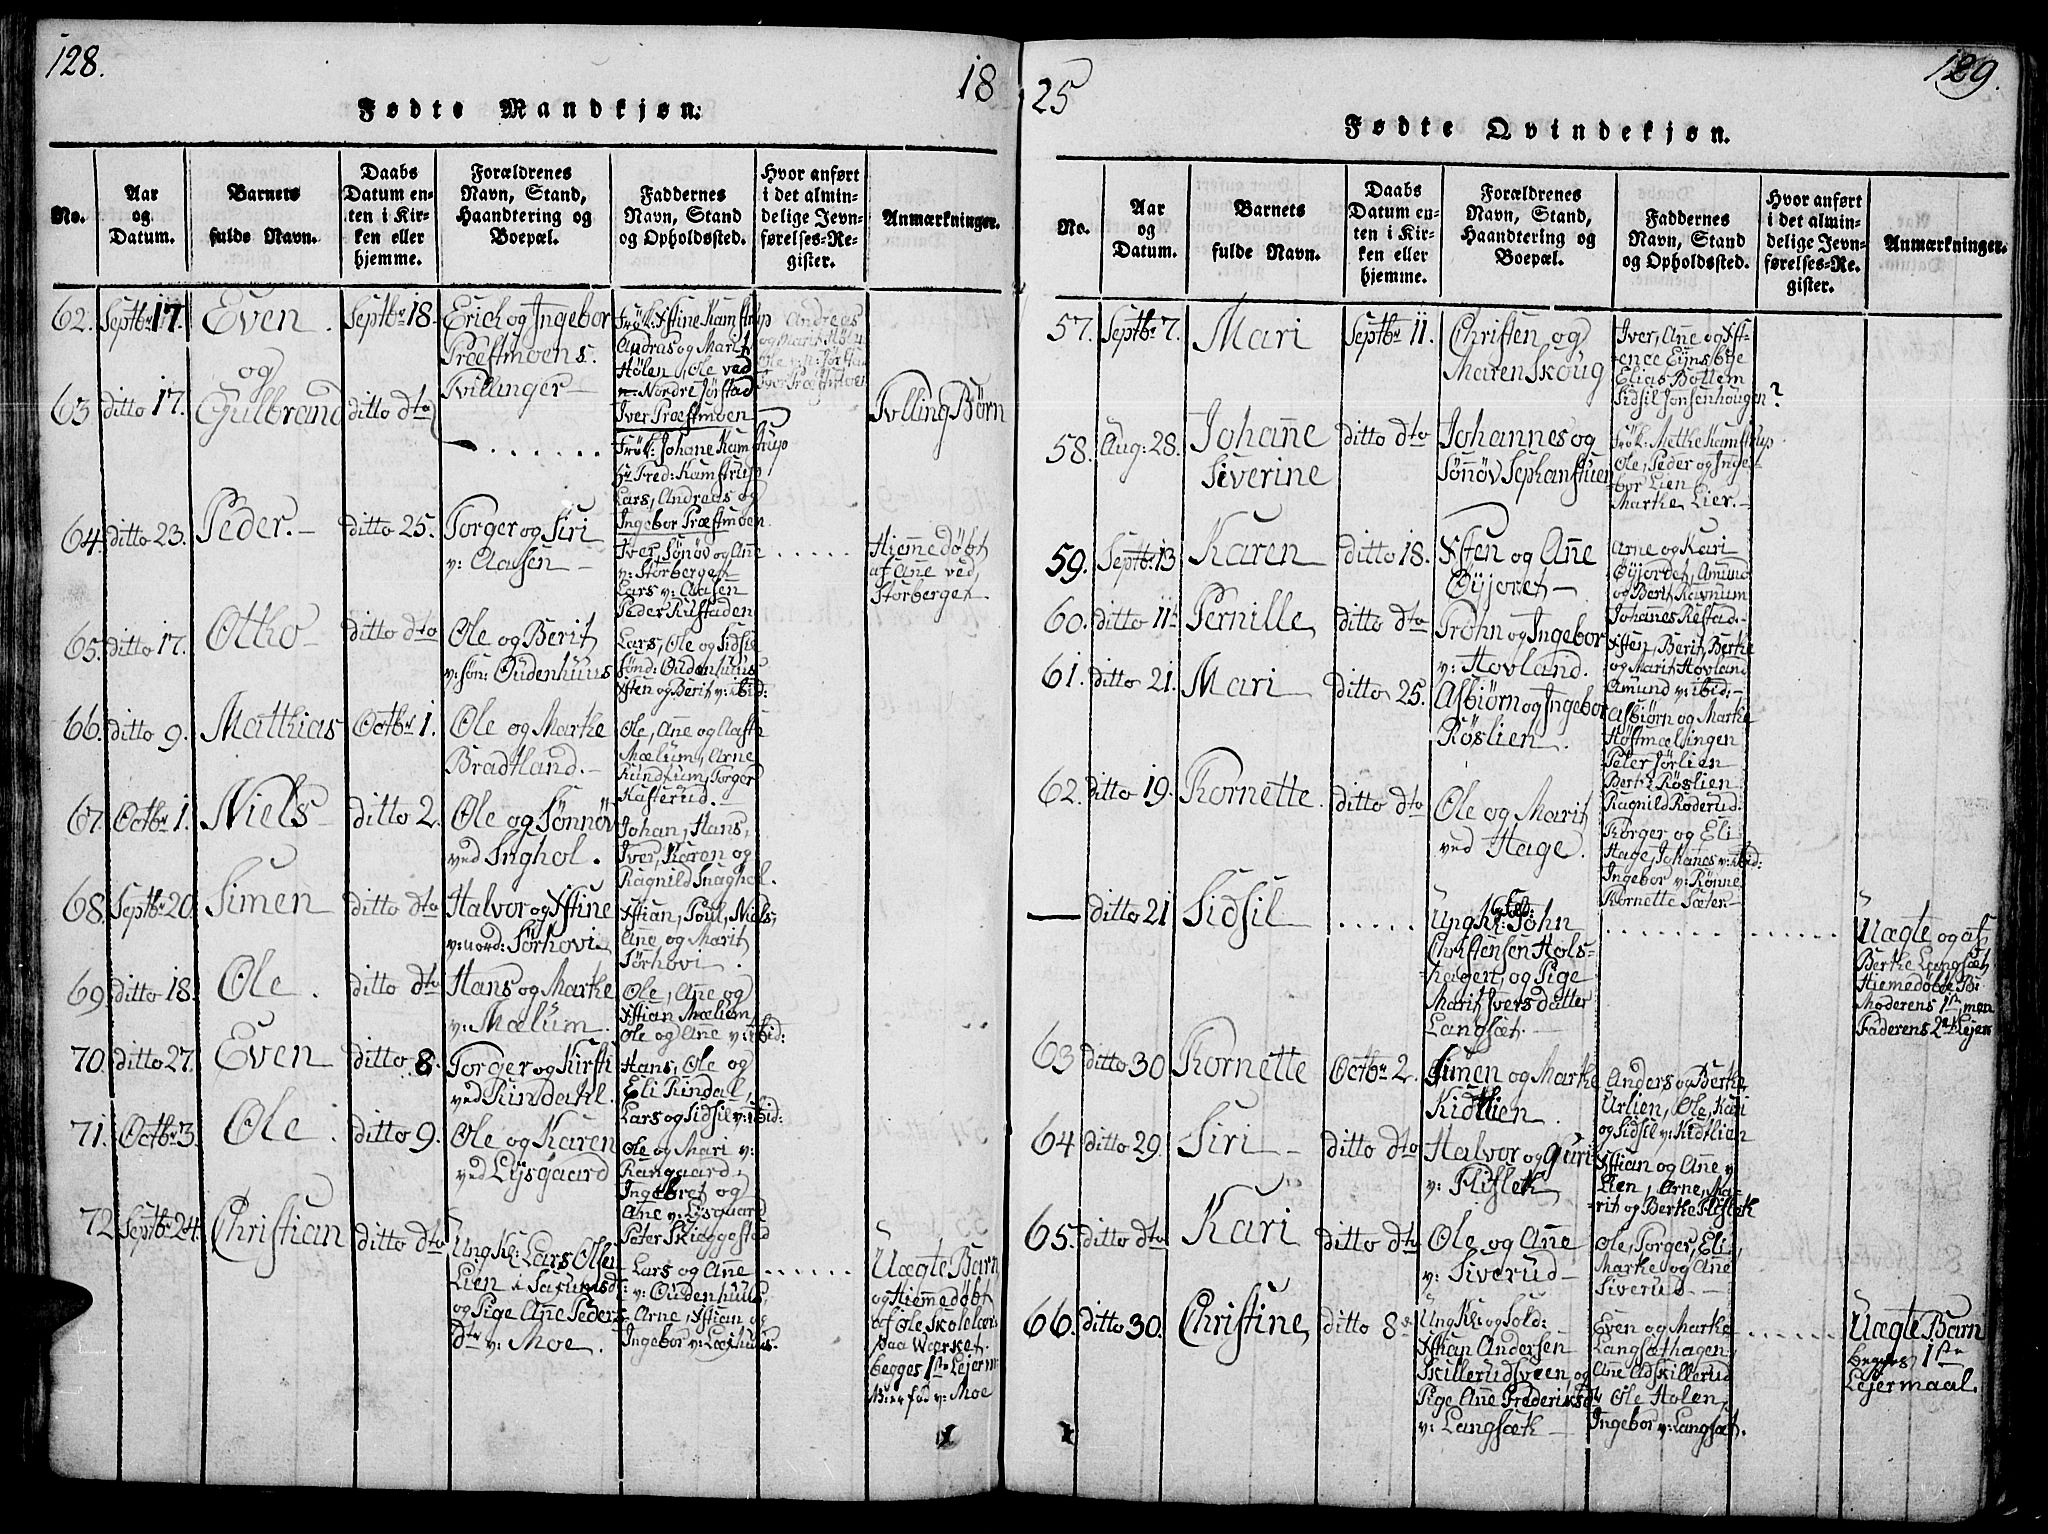 128.
18
Fødte Mandkjøn.
No.
Aar
og
Datum.
Barnets
fulde Navn.
Daabs
Datum en-
ten i Kir-
ken eller
hjemme.
Forældrenes
Navn, Stand,
Haandtering og
Boepæl.
Faddernes
Navn, Stand
og Opholdssted.
Hvor anført
i det almin-
delige Jevn-
førelses-Re-
gister.
Anmærkninger.
62. Septbr 17. Even. Septbr 18.
og
Erich og Ingebor
Præstmoens.
Tvillinger
Andras og Marit
Hølen, Ole ved
Nordre Jørstad
Iver Præstmoen
63 ditto 17. Gulbrand ditto dto
Frøk: Johane Kamstrup
hr Fred: Kamstrup
Lars, Andreas og
Ingebor Præstmoen.
Tvlling Børn
64. ditto 23. Peder. ditto 25.
Torger og Siri
v: Aasen
Iver, Sønøv og Ane
v: Storberget
Lars v: Aasen
Peder Rustaden
Hiemedøbt
af Ane ved
Storberget
65. ditto 17. Otho ditto dto
Ole og Berit
v: søn: Oudenhuus
Lars, Ole og Sidsil
sønd: Oudenhuus
Xsten og Berit v: ibid:
66. ditto 9. Matthias Octbr 1.
Ole og Marthe
Bradtland.
Ole, Ane og Aaste
Mælum, Arne
Rundsum, Torger
Hasterud.
67. Octbr 1. Niels ditto 2.
Ole og Sønnøv
ved Snghol.
Johan, Hans,
Iver, Karen og
Ragnild Snaghol.
68. Septbr 20. Simen ditto dto
Halvor og Xstine
v: nord: Sørhovi
Xstian, Poul, Niels,
Ane og Marit
Sørhovi.
69. ditto 18. Ole. ditto dto
Hans og Marthe
v: Mælum.
Ole, Ane og
Xstian Mælum,
Ole og Ane v: ibid:
70. ditto 27. Even ditto 8.
Torger og Kirsti
ved Rindahl.
Hans, Ole og
Eli Rindal,
Lars og Sidsil v: ibid:
71. Octbr 3. Ole ditto 9.
Ole og Karen
ved Lysgaard
Ole og Mari v:
Rangaard,
Ingebret og
Ane v: Lysgaard
Peter Skiæggestad
72 Septbr 24. Christian ditto dto
Ung K: Lars Olsen
Lien
og Pige Ane Peders
Dtr v: Moe.
Lars og Ane
v: Oudenhuus,
Arne, Xstian og
Ingebor v: Læxhuus.
Uægte Barn
og Hiemedøbt
af Ole Skolelær:
paa Wærket.
begges 1ste Lejerm:
v: Moe
25
129.
Fødte Qvindekjøn.
No.
Aar
og
Datum.
Barnets
fulde Navn.
Daabs
Datum en-
ten i Kir-
ken eller
hjemme.
Forældrenes
Navn, Stand,
Haandtering og
Boepæl.
Faddernes
Navn, Stand
og Opholdssted.
Hvor anført
i det almin-
delige Jevn-
førelses-Re-
gister.
Anmærkninger.
57. Septbr 7. Mari Septbr 11.
Christen og
Maren Skoug
Iver, Ane og Xst-
ence Eynsbye
Elias Bottem
Sidsil Jonsenhougen?
58. Aug: 28. Johanne
Siverine ditto dto
Johannes og
Sønnøv Sephanstuen
Frøk: Methe Kamstrup
Ole, Peder og Inge-
bor Lien
Marthe Lier.
59. Septbr 13 Karen ditto 18.
Xsten og Ane
Øyjoret
Arne og Kari
Øyjordet, Amund
og Berit Ravnum
Johanes Refstad.
60. ditto 11te Pernille ditto dto
Trohn og Ingebor
v: Hovland.
Xsten, Berit, Berthe
og Marit Hovland
Amund v: ibid:
61. ditto 21. Mari ditto 25.
Asbiørn og Ingebor
Røslien.
Asbiørn og Marthe
Høstmælingen
Peter Jørlien
Berthe Røslien
Ragnild Roderud.
62. ditto 19. Thornette. ditto dto
Ole og Marit
ved Hage.
Torger og Eli
Hage, Johanes v: ibid:
Ingebor v: Rønne
Thornette Sæter
ditto 21 Sidsil
Ung K: og Sold: John
Christensen Hols-
hagen, og Pige
Marit Ivers datter
Langsæt.
Uægte og af
Berthe Langsæt
Hiemedøbt
Moderens 1ste, men
Faderens 2det Lejer
63 ditto 30 Thornette Octbr 2.
Simen og Marthe
Kidtlien.
Anders og Berthe
Urlien, Ole, Kari
og Sidsil v: Kidtlien
64 ditto 29. Siri ditto dto
Halvor og Guri
v: Flisleth
Xstian og Ane v
Lien, Arne, Ma-
rit og Berthe Flisleth
65. ditto dto Kari ditto dto
Ole og Ane
v: Siverud
Ole, Torger, Eli,
Marthe og Ane
Siverud.
66. ditto 30. Christine, ditto 8de
Ung K: og Sold:
Xstian Andersen
Skillerudsveen og
Pige Ane Frederiksdtr
v: Langsæth
Even og Marthe
Langsæthagen,
Ane Skillerud
Ole Holen,
Ingebor v: Langsæt.
Uægte Barn
begges 1ste
Lejermaal.